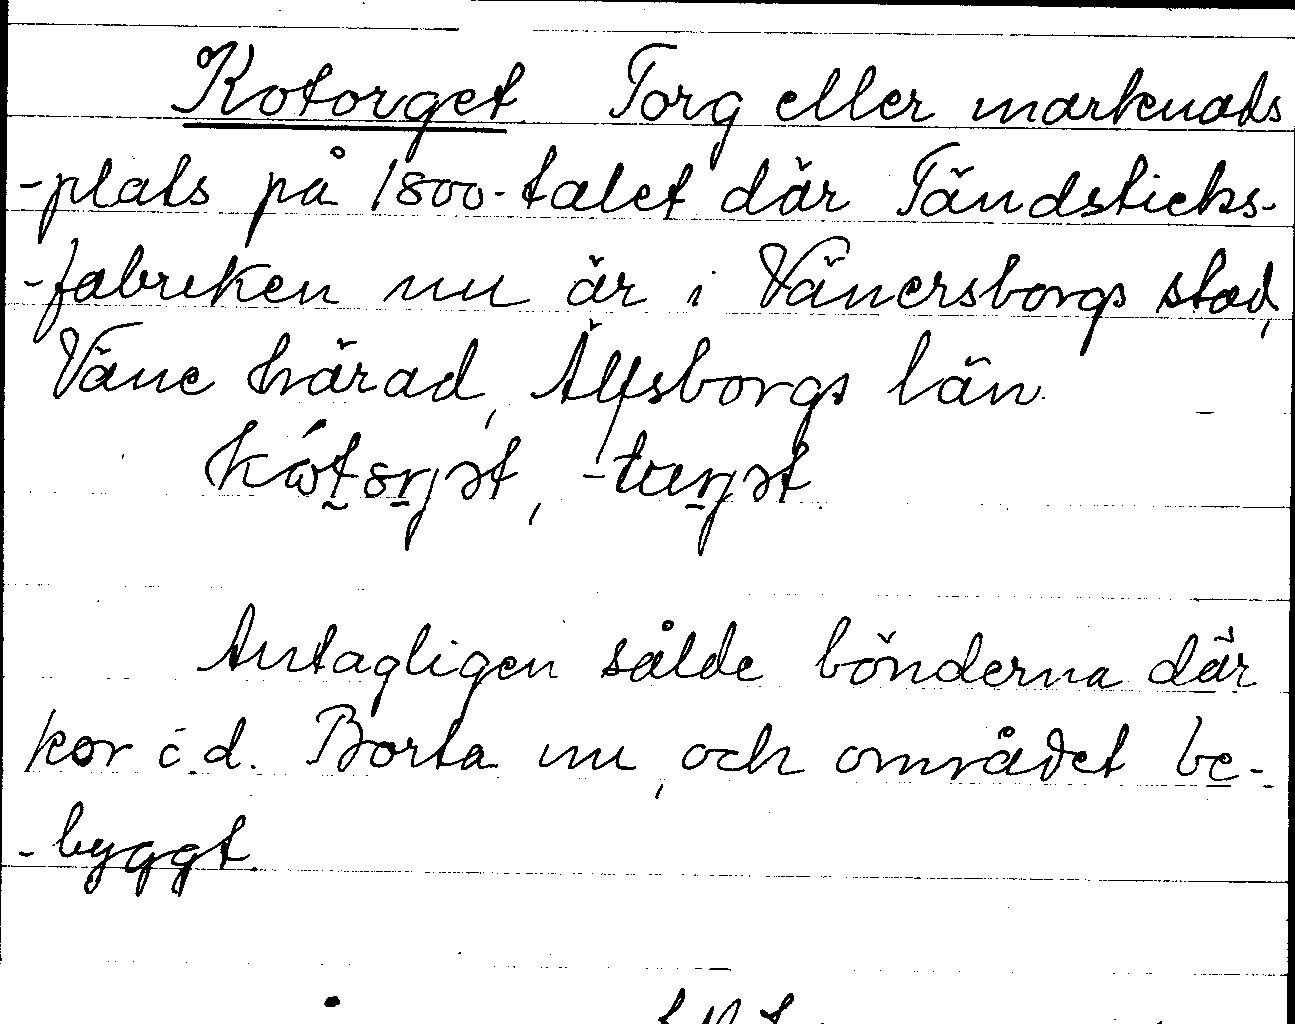 Kotorget Torg eller marknads
-plats på 1800-talet där Tändsticks-
-fabriken nu är i Vänersborgs stad,
Väne härad, Älfsborgs län.
Antagligen sålde bönderna där
kor i.d. Borta nu, och området be-
-byggt.